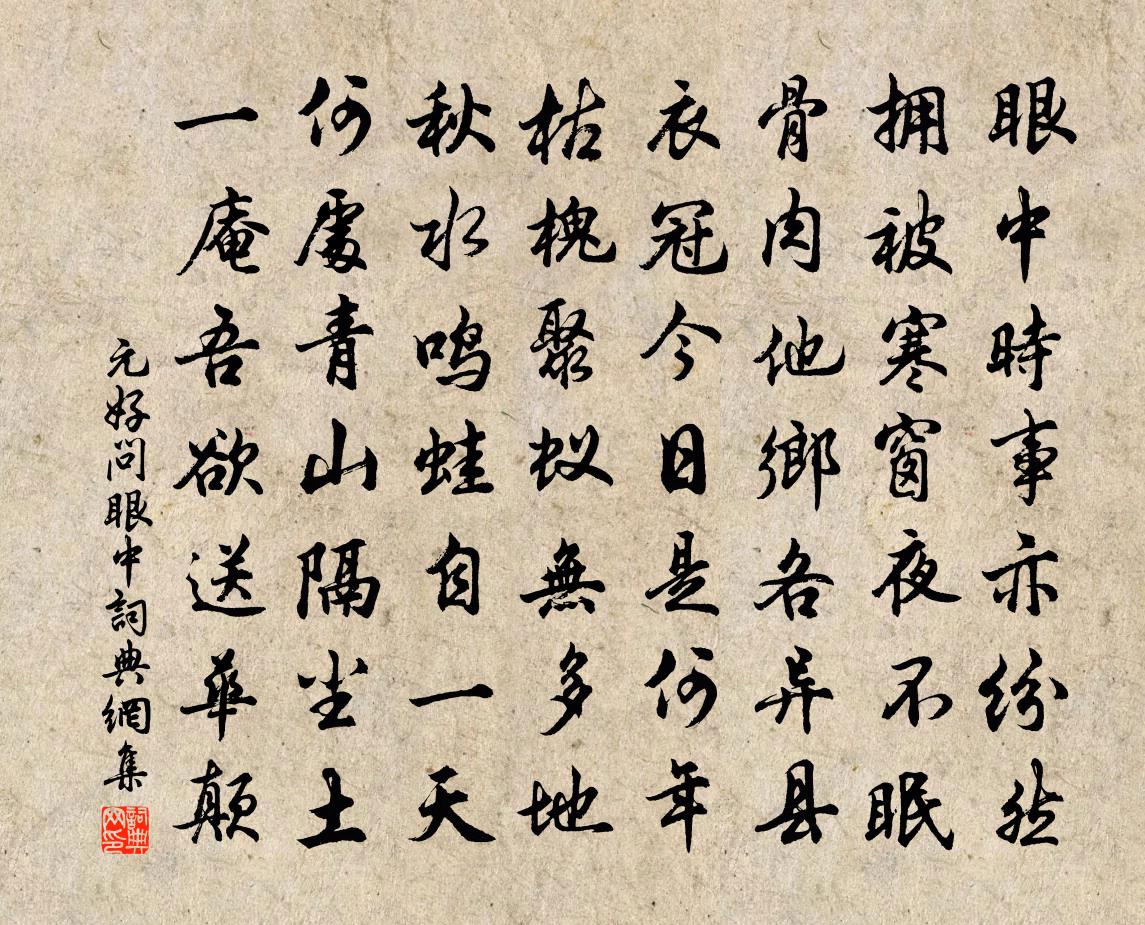 眼中時事亦纷然
拥被寒窗夜不眠
骨肉他鄉各异县
衣冠今日是何年
枯槐聚蚁無多地
秋水鸣蛙自一天
何處青山隔尘土
一庵吾欲送華颠
元好问眼中詞典網集
詞典网印